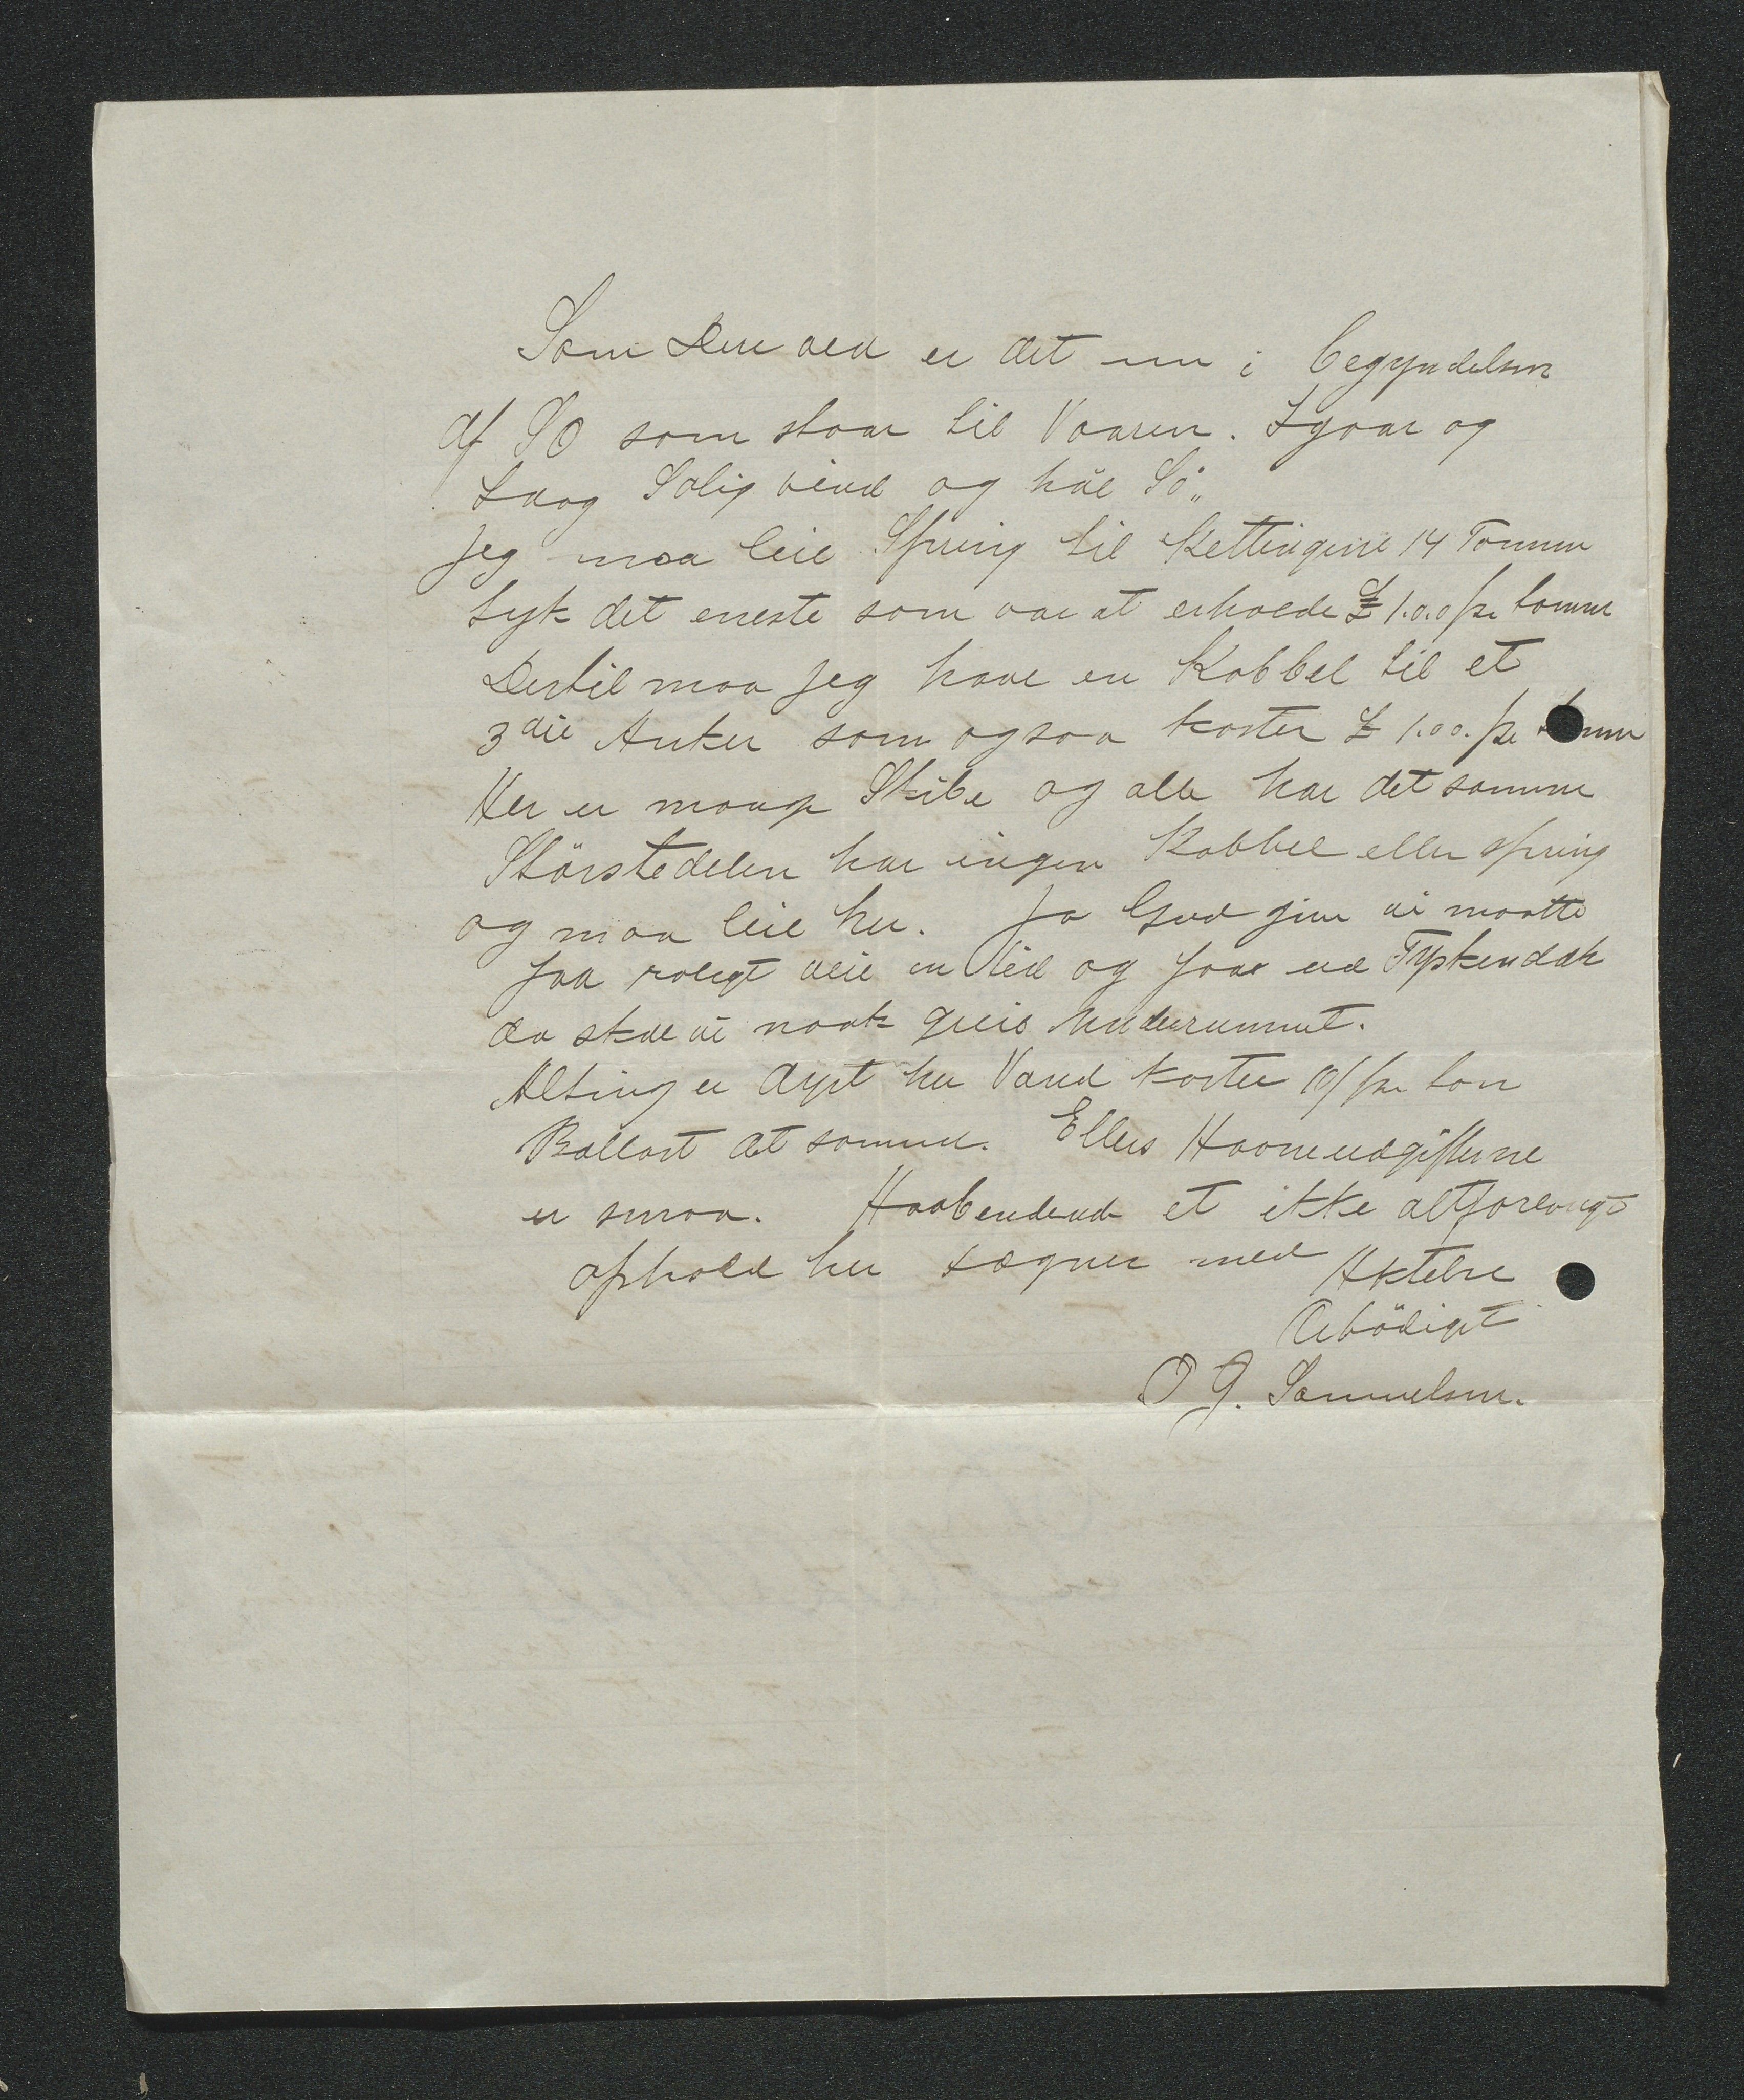 Som Dere ved er det nu i begyndelsen
af SO som staar til Vaaren. Igaar og
Idag Solig vind og hül Sö„
Jeg maa leie Spring til Kettingerne 14 Tommer
tyk det eneste som var at erholde £ 1.0.0 pr tomme
Dertil maa jeg have en Kabbel til et
3die Anker som ogsaa koster £ 1.00. pr tomme
Her er mange Skibe og alle har det samme
Störstedelen har ingen Kabbel eller spring
og maa leie her. Ja Gud give vi maatte
faa roligt veir en tid og faae ud
da skal vi nok greie
Alting er dyrt her Vand koster 10/ pr ton
Ballast det samme. Ellers Havneudgifterne
er smaa. Haabendende et ikke altforlangt
ophold her tegner med Aktelse
Ärbödigst
O J. Samuelsen.